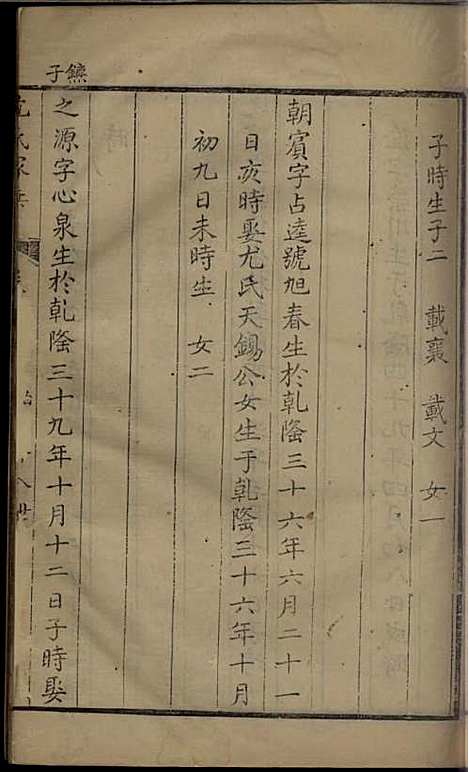 子時生子二 載襄 載文 女一
朝賓字占逵號旭春生於乾隆三十六年六月二十一
日亥時娶尤氏天錫公女生于乾隆三十六年十月
初九日未時生 女二
之源字心泉生於乾隆三十九年十月十二日子時娶
子
氏家乘
八世